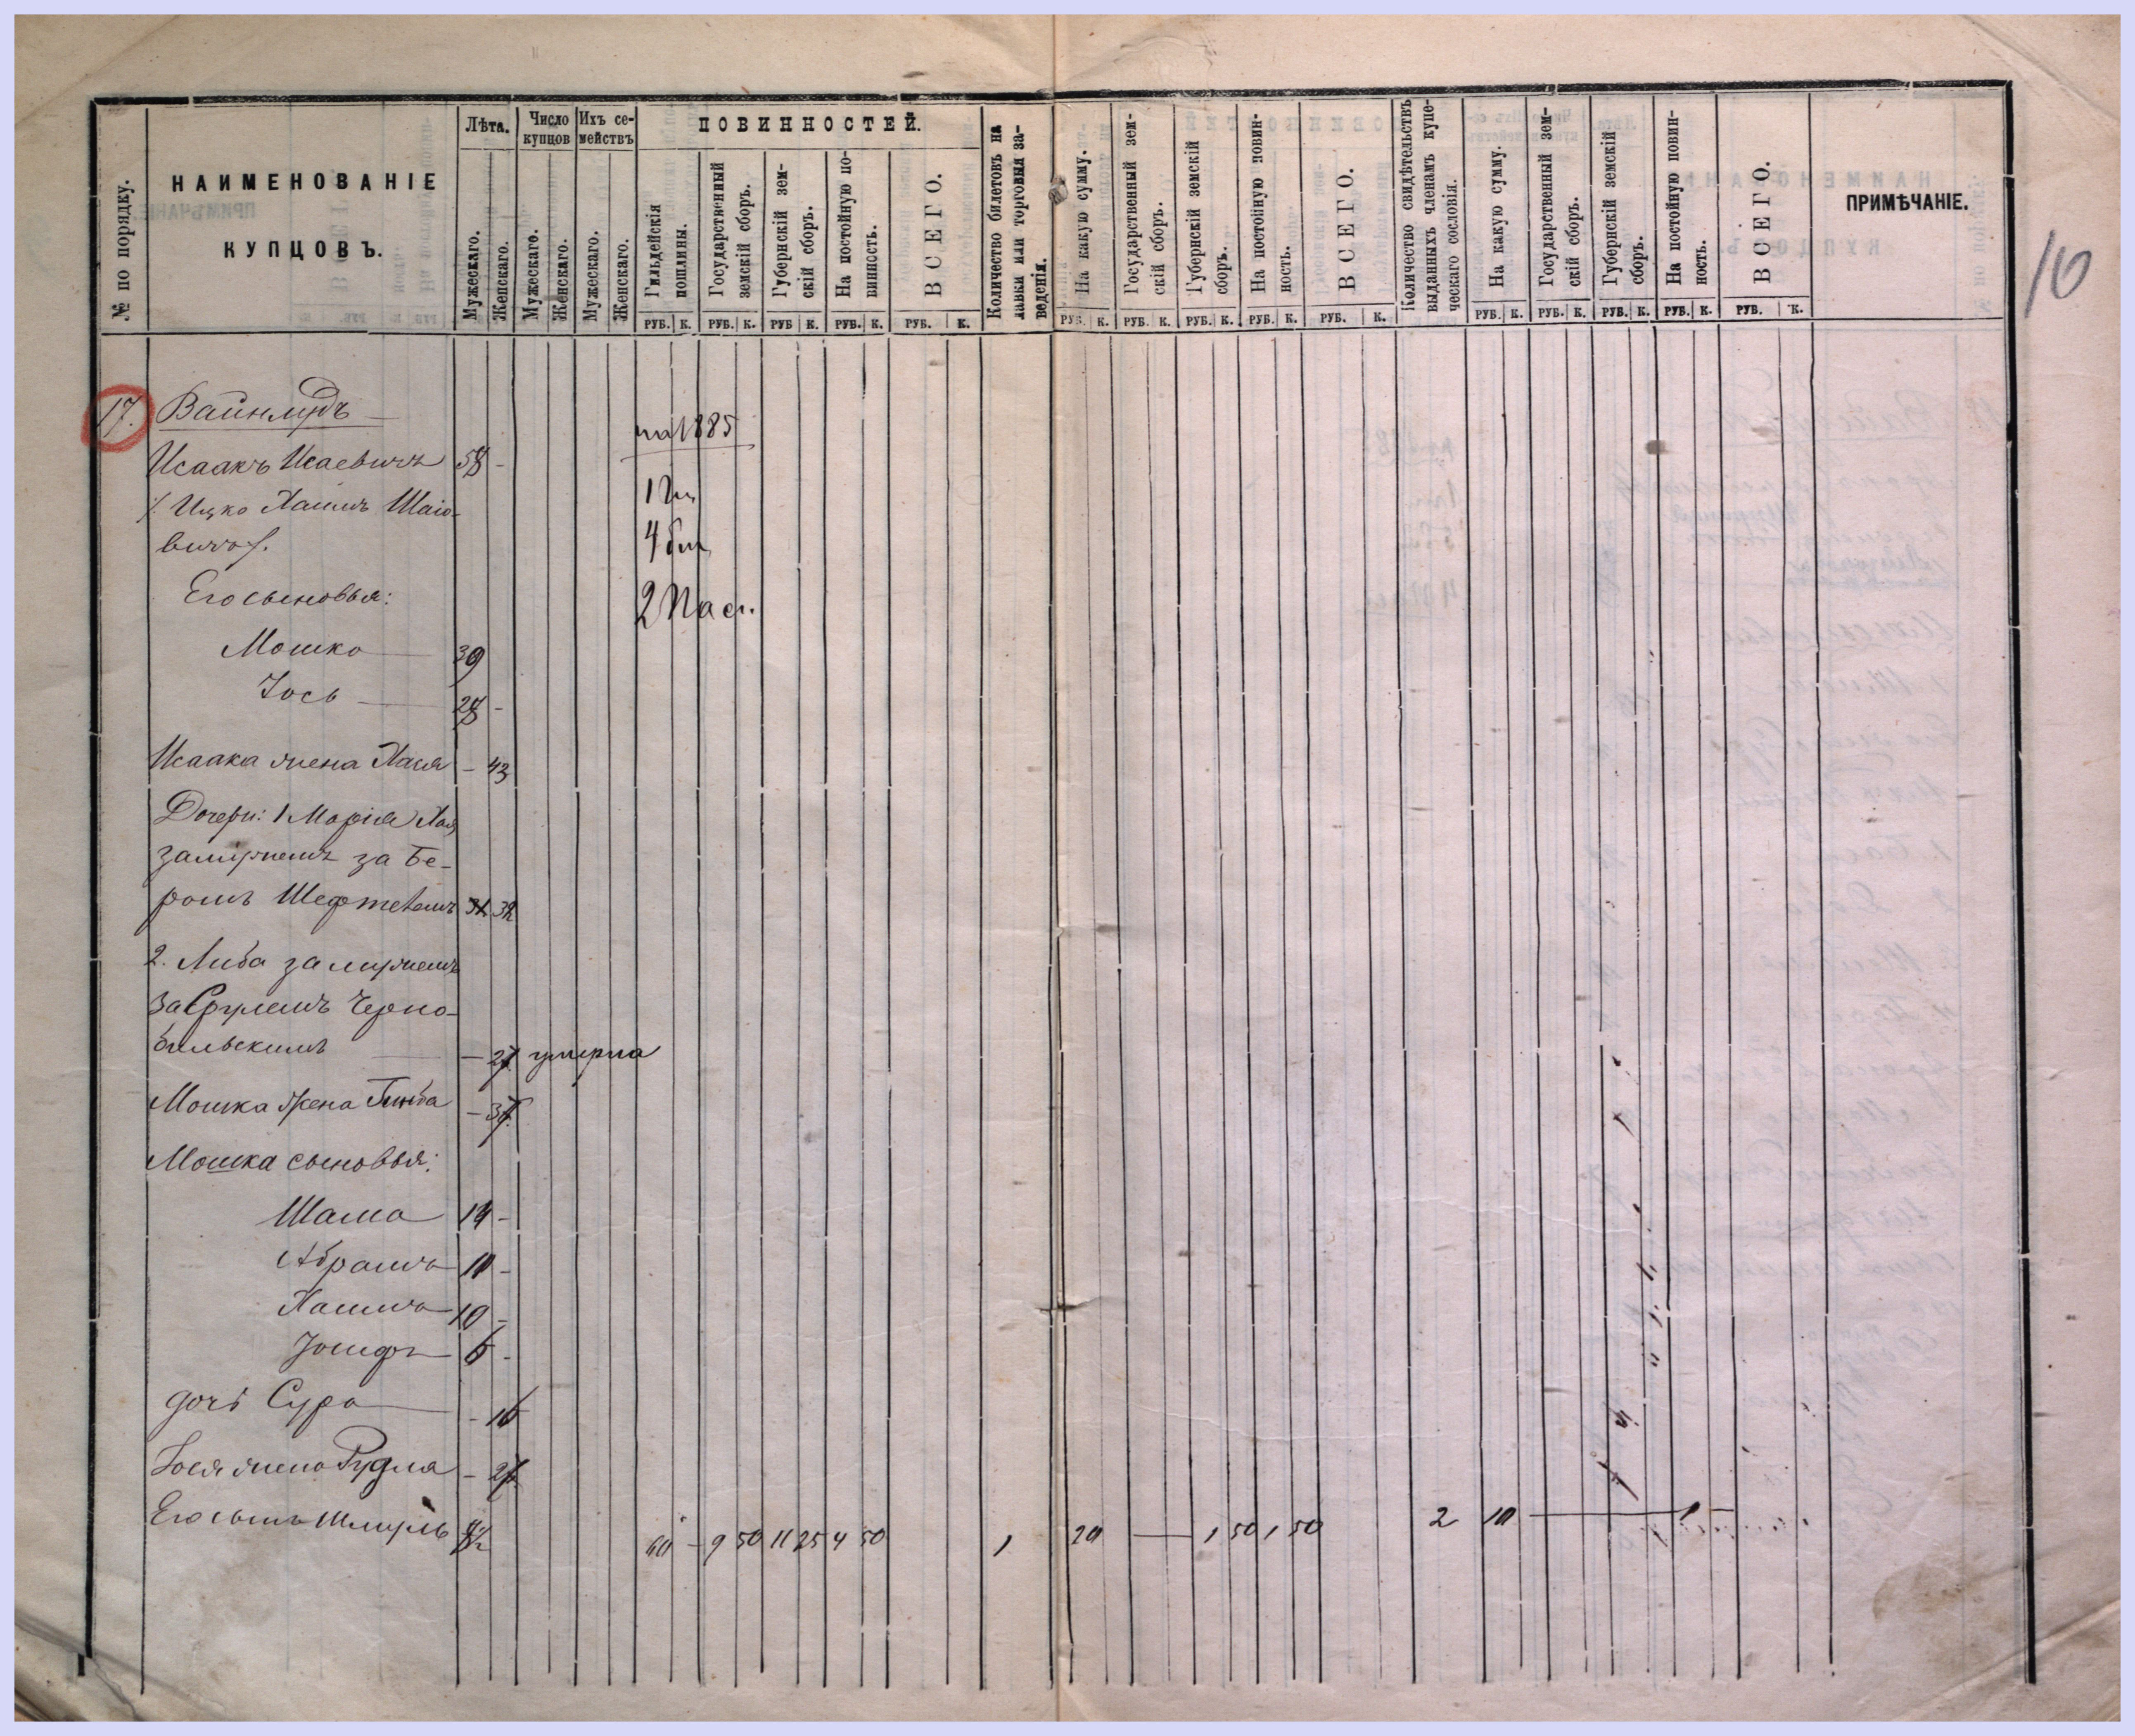 № по порядку.
НАИМЕНОВАНІЕ
КУПЦОВЪ.
Лѣта.
Мужескаго.
Женскаго.
Число
купцов
Мужескаго.
Женскаго.
Ихъ се-
мействъ
Мужескаго.
Женскаго.
ПОВИННОСТЕЙ.
Гильдейскія
пошлины.
Государственный
земскій сборъ.
Губернскій зем-
скій сборъ.
На постойную по-
винность.
ВСЕГО.
Количество билетовъ на
лавки или торговыя за-
веденія.
На какую сумму.
Государственный зем-
скій сборъ.
Губернскій земскій
сборъ.
На постойную повин-
ность.
ВСЕГО.
Количество свидѣтельствъ
выданныхъ членамъ купе-
ческаго сословія.
На какую сумму.
Государственный зем-
скій сборъ.
Губернскій земскій
сборъ.
На постойную повин-
ность.
ВСЕГО.
ПРИМѢЧАНІЕ.
РУБ. К. РУБ. К. РУБ К. РУБ. К. РУБ. К. РУБ. К. РУБ. К. РУБ. К. РУБ. К. РУБ. К. РУБ. К. РУБ. К. РУБ. К. РУБ. К. РУБ. К.
10
17. Вайнлудъ
на 1885
Исаакъ Исаевичъ 58 -
Ицко Хаимъ Шаіо-
вичъ
4 бил
2 Пас.
Его сыновья:
Мошко 39
Іось 28 -
Исаака жена Хася - 43
Дочери: 1 Марія Хая
замужемъ за Бе-
ромъ Шефтелемъ 32
2. Либа замужемъ
за Срулемъ Черно-
быльскимъ - 27 умерла
Мошка жена - 37
Мошка сыновья:
Шама 14 -
Абрамъ 11 -
Хаимъ 10 -
Іосифъ 6 -
дочь Сура - 16
Іося жена Рудля - 27
Его сынъ Шмуль
60 - 9 50 11 25 4 50 1 20 — 1 50 1 50 2 10 — 1 —